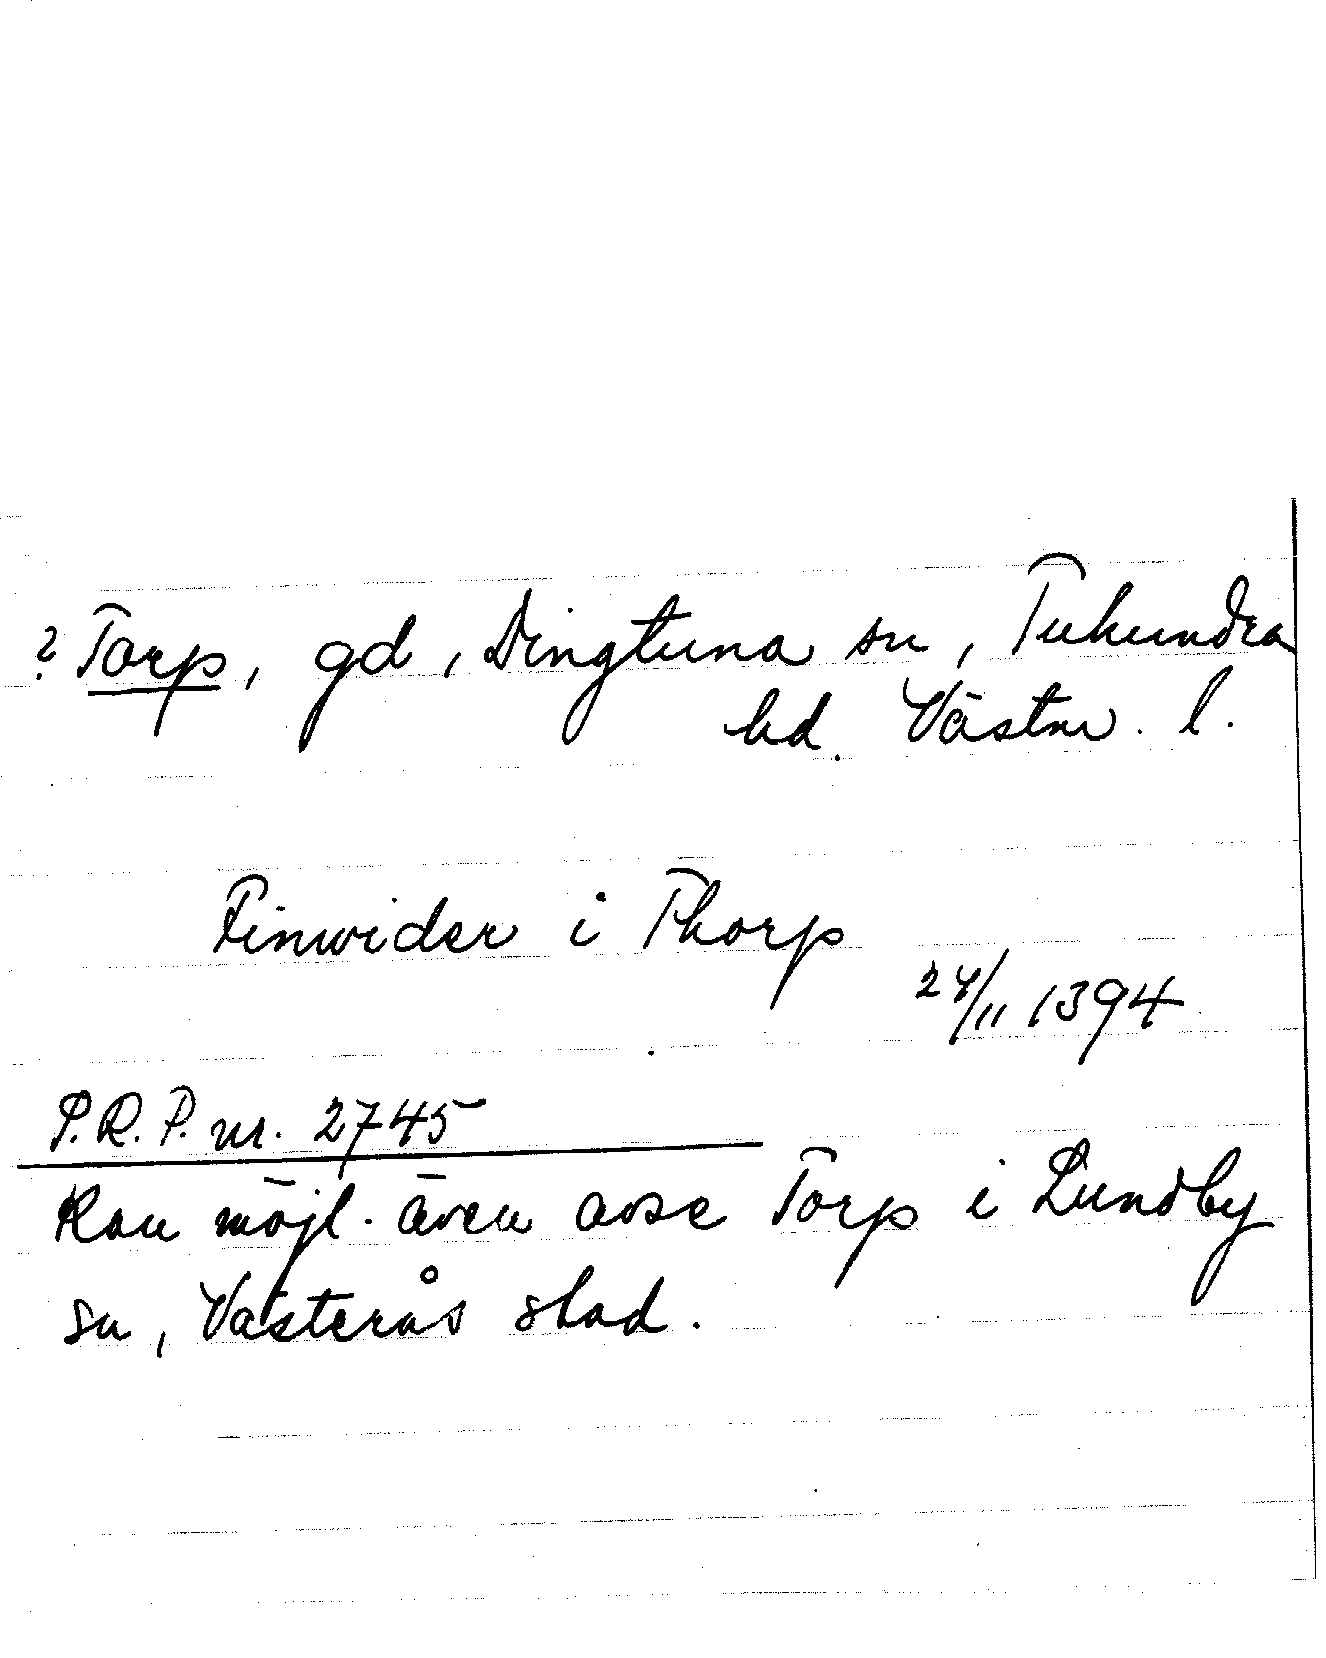 ? Torp, gd, Dingtuna sn, Tuhundra
hd. Västm. l.
Finwider i Thorp
24/11 1394
P.R.P. nr. 2745
Kan möjl. även avse Torp i Lundby
sn, Västerås stad.